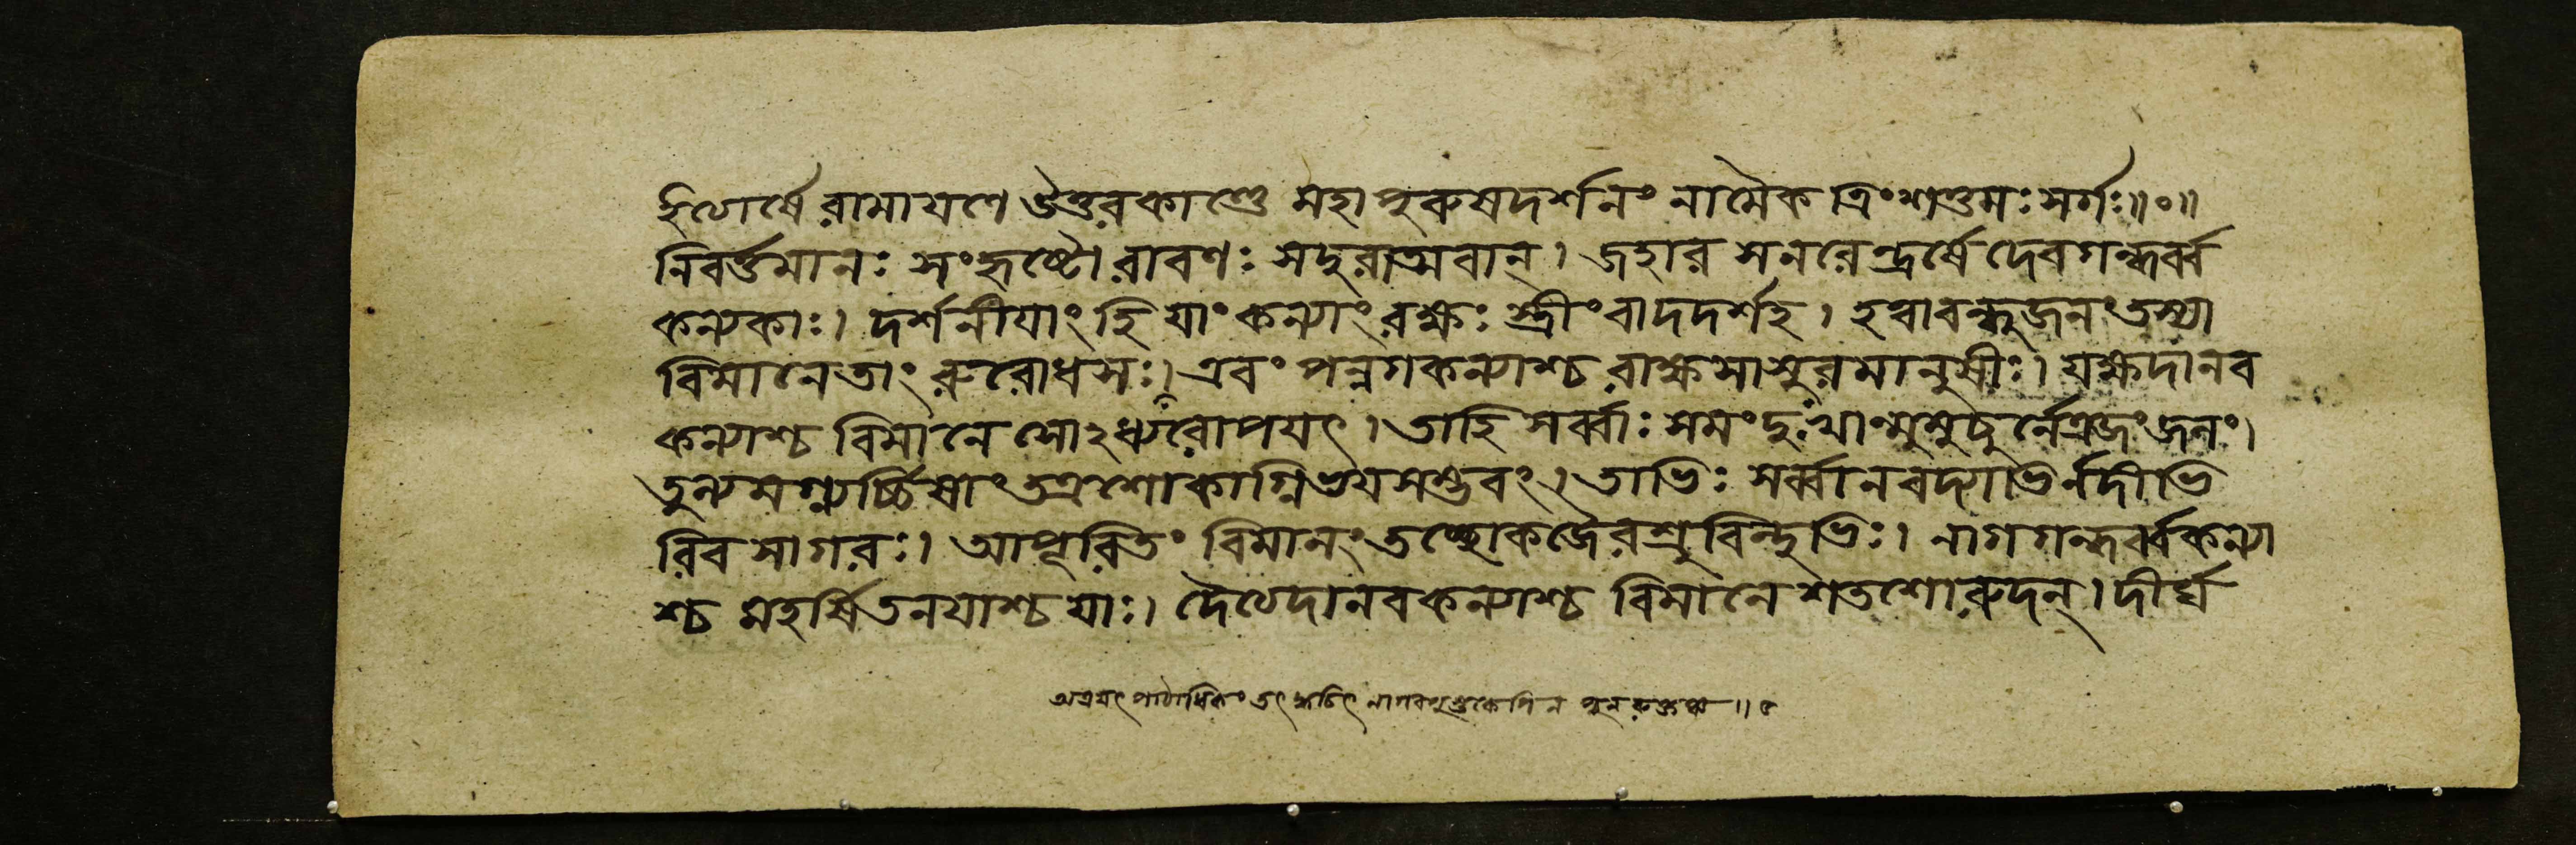 ইত্যার্ষে রামায়ণে ঔত্তরকাণ্ডে মহাপুরুষদর্শনং নামৈকত্রিংশত্তমঃ সর্গঃ॥০॥
নিবর্ত্তমানঃ সংহৃষ্টো রাবণঃ সদুরাত্মবান্। জহার সনরেন্দ্রর্ষে দেবগন্ধর্ব্ব
কন্যকাঃ। দর্শনীযাং হি যাং কন্যাং রক্ষঃ স্ত্রীং বাদদর্শহ। হত্বাবন্ধুজনং তস্যা
বিমানেতাং রুরোধসঃ। এবং পন্নগকন্যাশ্চ রাক্ষসাসুরমানুষীঃ। যক্ষদানব
কন্যাশ্চ বিমানে সোঽধ্যরোপযৎ। তাহি সর্ব্বাঃ সমং দুঃখান্মুমুচুর্নেত্রজং জলং।
তুল্যমগ্ন্যর্চ্চিষাং তত্রশোকাগ্নিভযসম্ভবং। তাভিঃ সর্ব্বানবদ্যাভির্নদীভি
রিব সাগরঃ। আপূরিতং বিমানং তচ্ছোকজৈরশ্রুবিন্দুভিঃ। নাগগন্ধর্ব্বকন্যা
শ্চ মহর্ষিতনযাশ্চ যাঃ। দৈত্যদানবকন্যাশ্চ বিমানে শতশোরুদন্। দীর্ঘ
অত্রযৎ পাঠাধিকং তৎ ক্বচিৎ